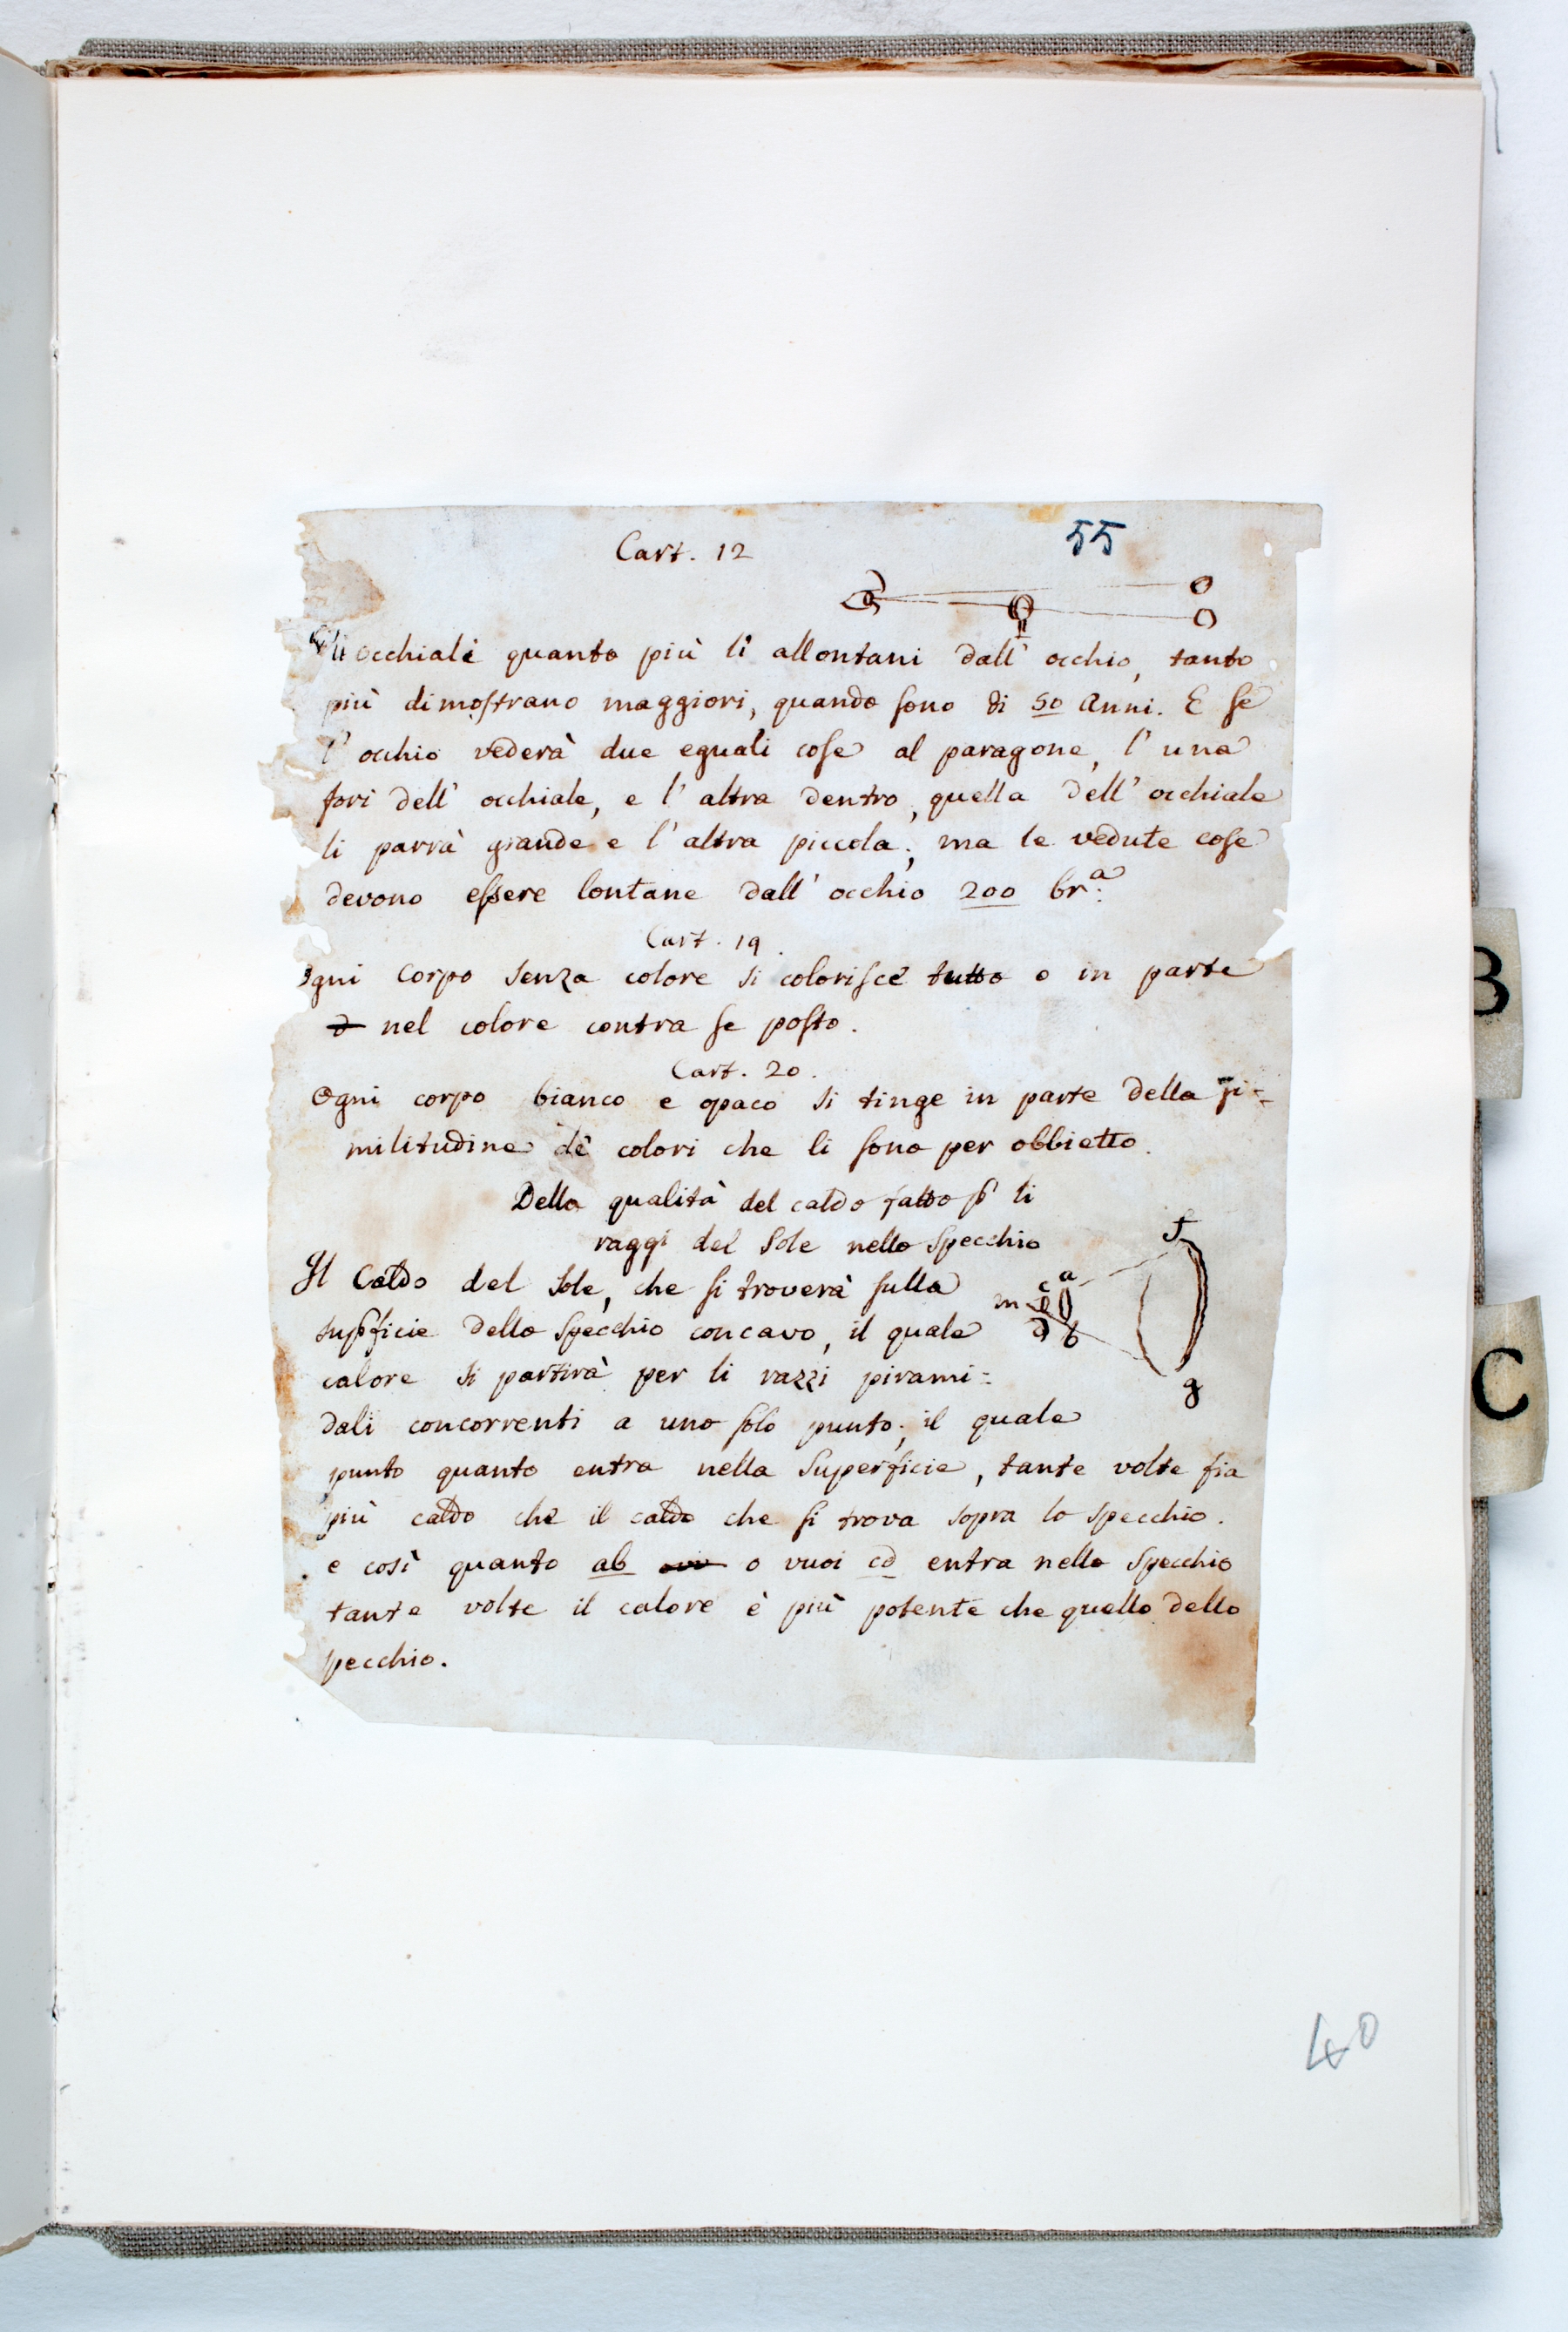 55
Cart. 12
Gli occhiali quanto più li allontani dall' occhio, tanto
più dimostrano maggiori, quando sono di 50 Anni. E se
l' occhio vederà due eguali cose al paragone, l' una
fori dell' occhiale, e l' altra dentro, quella dell' occhiale
li parrà grande e l' altra piccola; ma le vedute cose
devono essere lontane dall' occhio 200 br:a
Cart. 19.
Ogni Corpo senza colore si colorisce tutto o in parte
d nel colore contra se posto.
Cart. 20.
Ogni corpo bianco e opaco si tinge in parte della si=
militudine de' colori che li sono per obbietto.
Della qualità del caldo fatto p li
raggi del Sole nello Specchio
f
Il Caldo del Sole, che si troverà sulla
c a
m
supficie dello Specchio concavo, il quale
d b
calore si partirà per li razzi pirami=
g
dali concorrenti a uno solo punto; il quale
punto quanto entra nella Superficie, tante volte fia
più caldo che il caldo che si trova sopra lo specchio.
e così quanto ab o vuoi cd entra nello Specchio
tante volte il calore è più potente che quello dello
specchio.
40
B
C